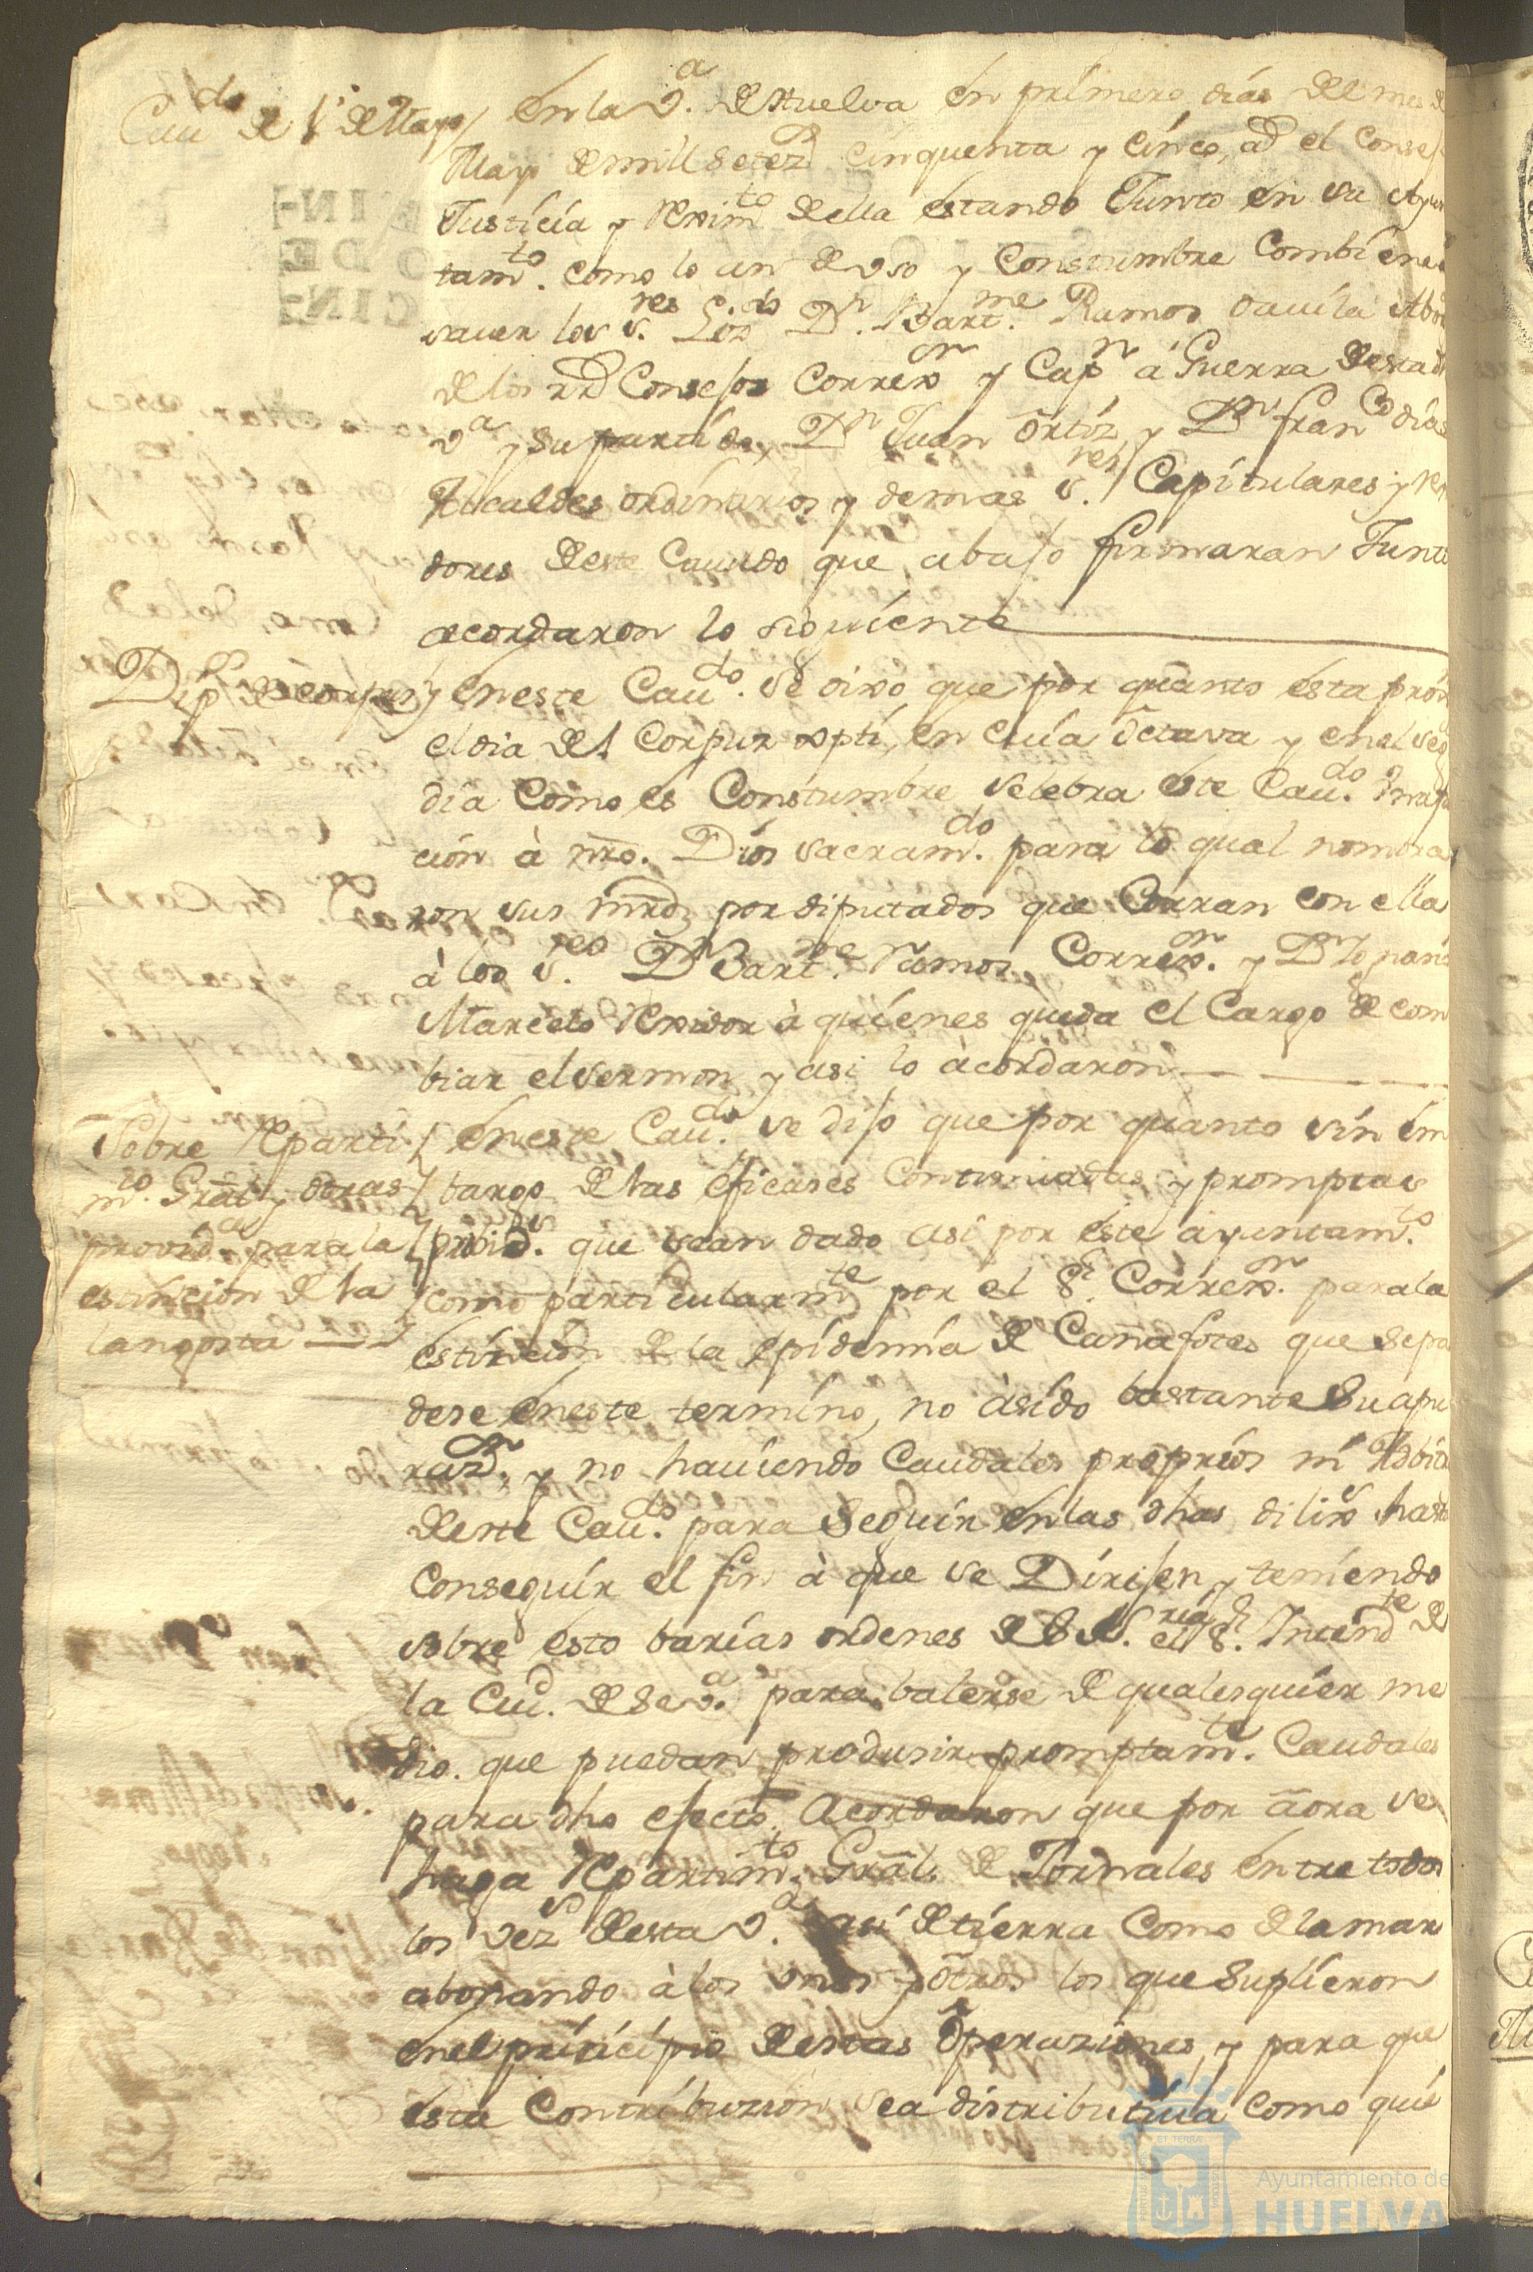 Cau.do de 1.º de Mayo
En la V.a de Huelva en primero dias del mes de
Mayo de mill setez.s cinquenta y cinco, ad el Consejo
Justicia y Reximto della estando Junto en su Ayun
tamto. como lo an de uso y Constumbre combiene a
sauer los s.res Lizdo Dn. Bartme. Ramos Dauila Abo
de los RRs Consejos Correxor y Capn à Guerra desta
va y su partido, Dn Juan Ortiz, y Dn franco dias
Alcaldes ordinarios y demas s.res Capitulares y Rexi
dores deste Cauildo que abajo firmaran Junto
acordaron lo siguiente
Dip.s de corpus
en este Caudo. se dixo que por quanto esta proxi
el dia del Corpus xpti, en cuia octava y en el seg
dia como es Constumbre selebra este Caudo. 
cion à nro. Dios sacramdo. para lo qual nombra
ron sus mrds por diputados que Corran con ella
à los s.res Dn Bartme. Ramos Correxor. y Dn Ygnanc
Marcelo Rexidor à quienes queda el Cargo de com
biar el sermon y asi lo àcordaron
Sobre Reparti
mto. Gral y otras
provida para la
estincion de la
langosta
En este Caudo. se dijo que por quanto sin em
bargo de las eficases continuadas y promptas
provids. que sean dado asi por este ayuntamto.
como particularmte por el Sr. Correxor. para la
estincion de la epidemia de Cañafotes que se pa
dese en este termino, no àsido bastante su apu
razon. y no hauiendo Caudales proprios ni Adbitr
deste Caudo. para seguir en las dhas dilixs hasta
conseguir el fin à que se Dirijen, y teniendo
sobre esto barias ordenes de S S.ria el Sr. Intendte de
la Ciud. de Seva. para balerse de qualesquier me
dio. que puedan produsir promptamte. Caudales
para dho efecto. Acordaron que por aora se
haga Repartimto. Gral. de Jornales entre todos
los vezs desta va. asi de tierra como de la mar
abonando à los unos y otros los que suplieron
en el principio destas operaziones, y para que
esta Contribuzion sea distributiua como qui
Ayuntamiento de
HUELVA